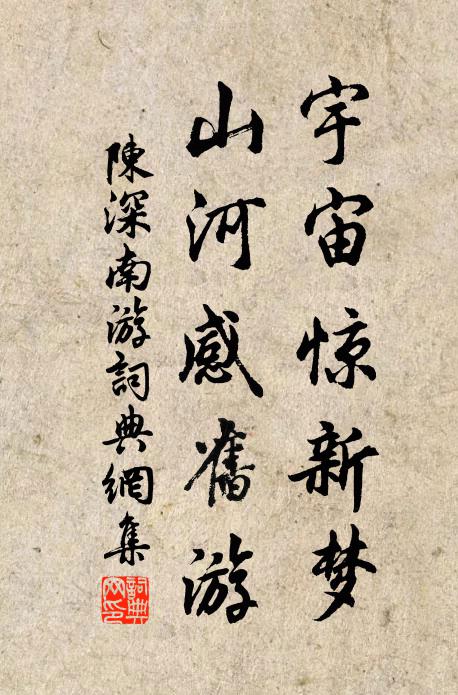 宇宙惊新梦
山河感舊游
陳深南游詞典網集
詞典網印